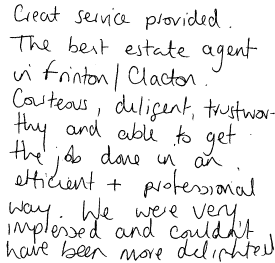 Great service provided.
The best estate agent
in Frinton/Clacton.
Courteous, diligent, trustwor-
thy and able to get
the job done in an
efficient + professional
way. We were very
impressed and couldn't
have been more delighted